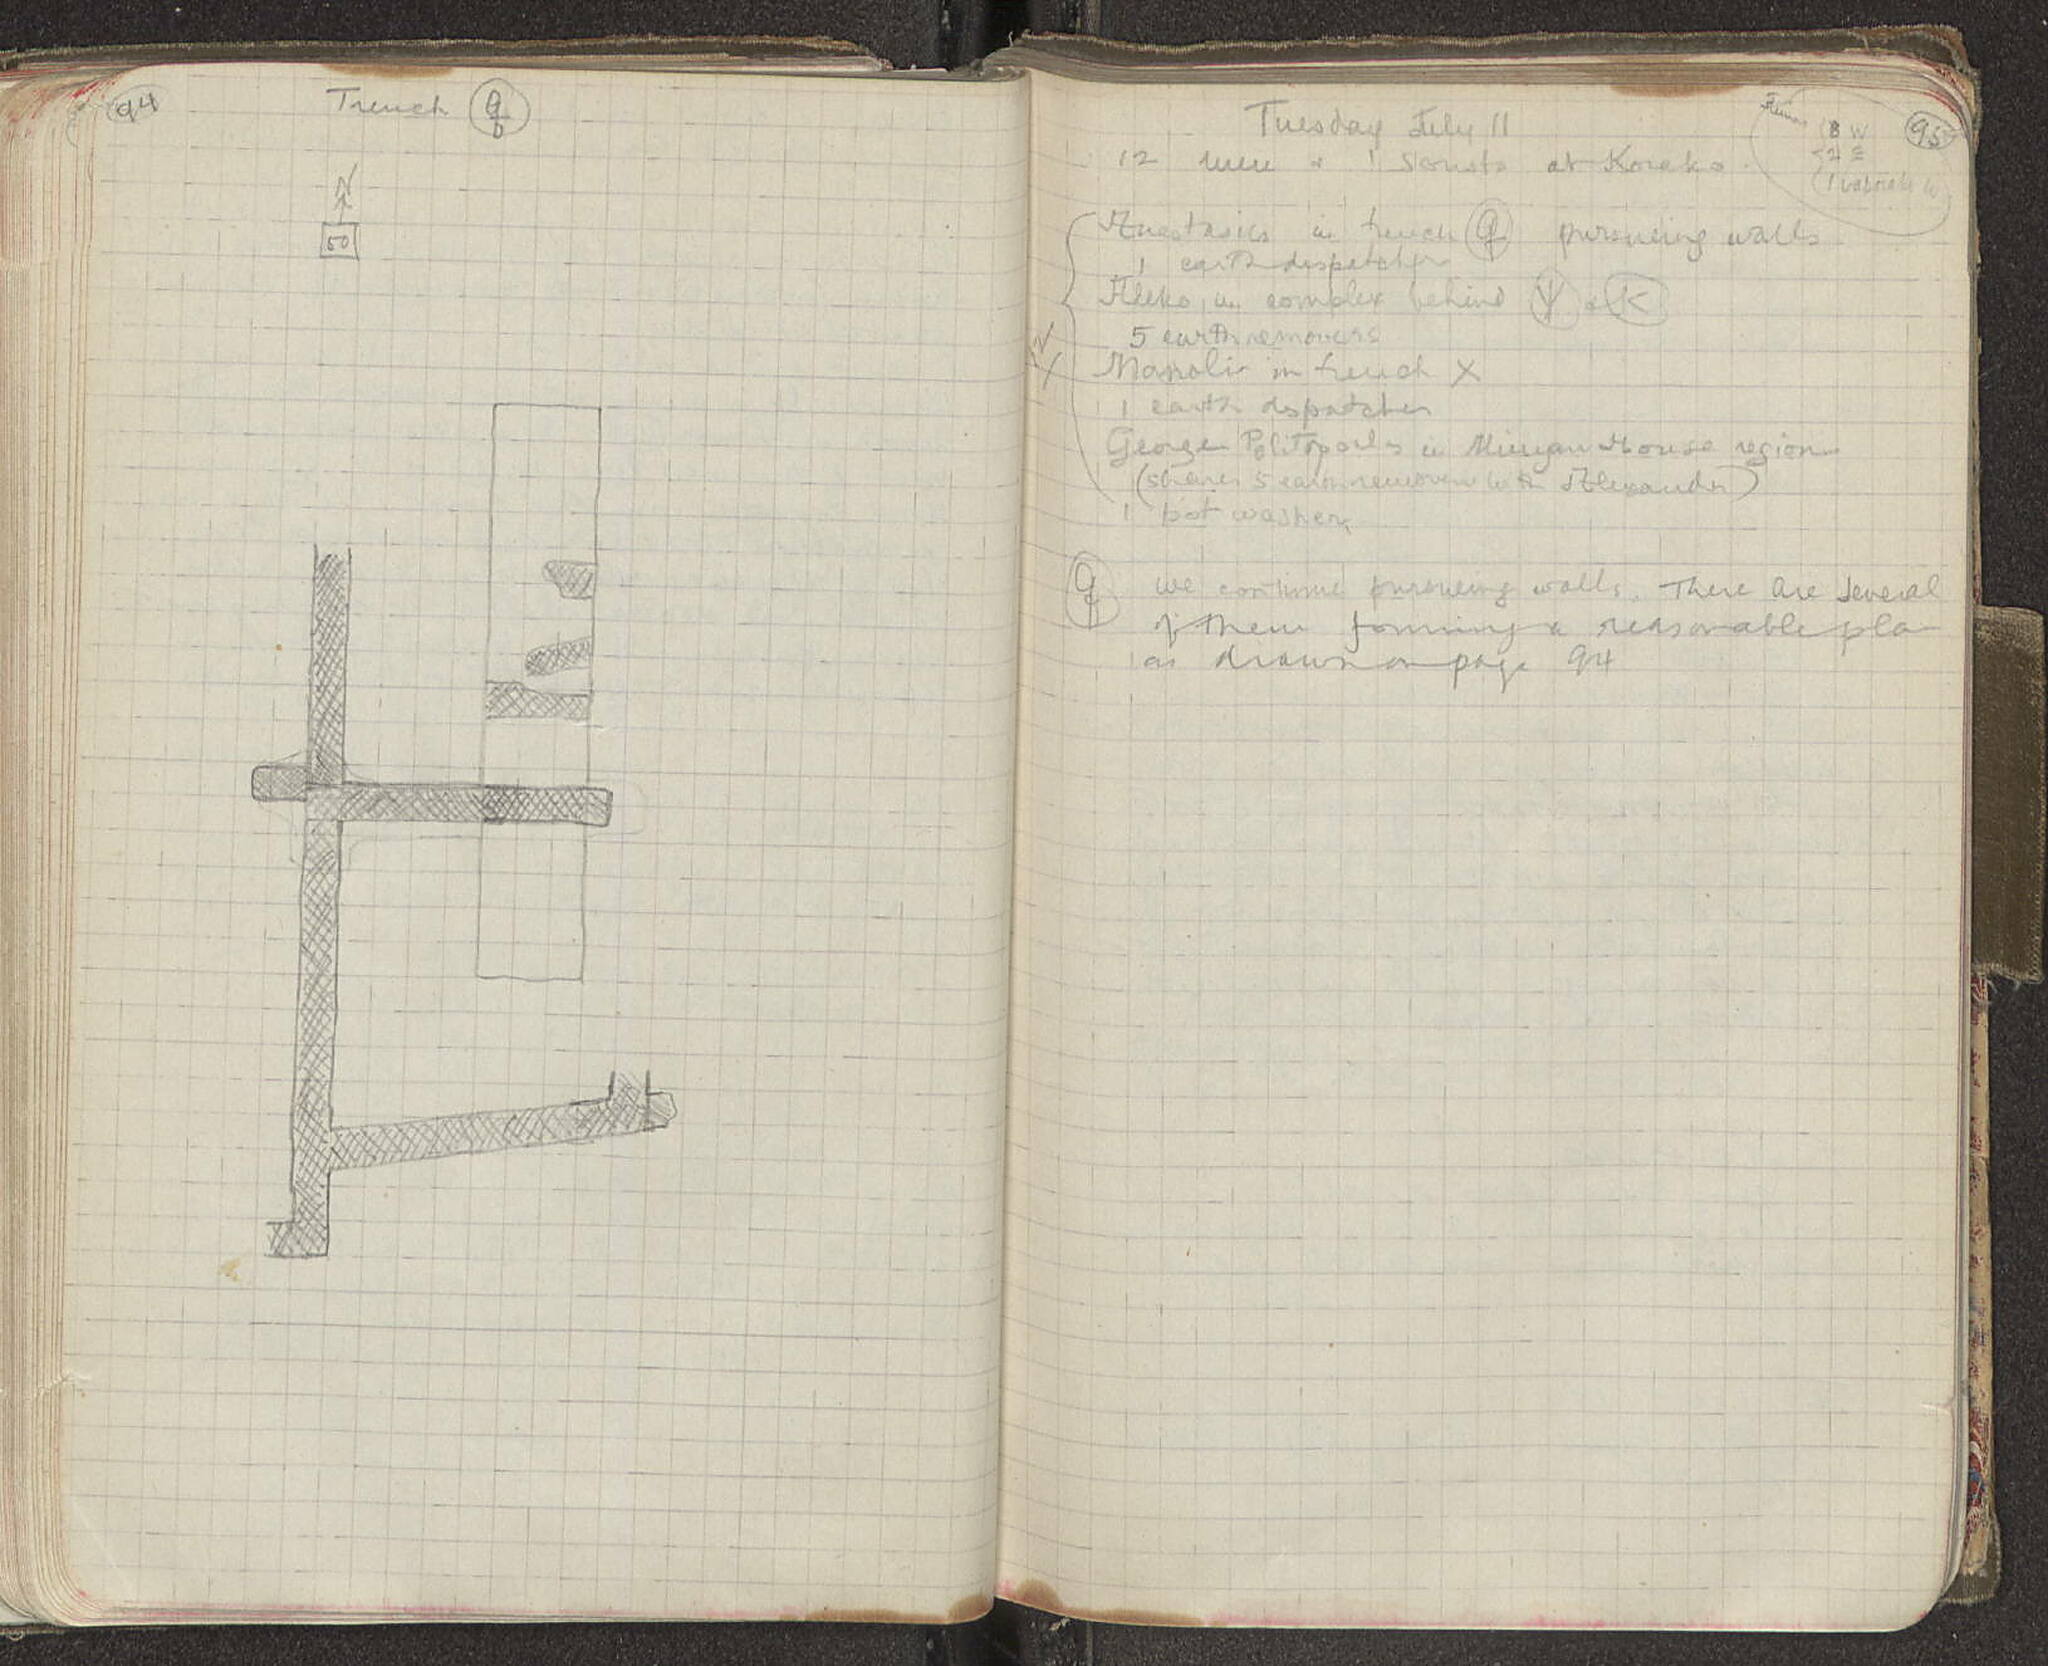 94
Trench
N
50
95
Tuesday July 11
8 W
2 E
12 men & 1 Sousta at Korako
Anastasis in trench pursueing walls
1 earth dispatcher
Aleko in complex behind Ψ & K
5 earth removers
12
Manoli in trench X
1 earth dispatcher
George Politopoulos in Minyan House region
(shares 5 earth removers with Alexander)
1 pot washer
We continue pursueing walls. There are several
of them forming a reasonable plan
as drawn on page 94